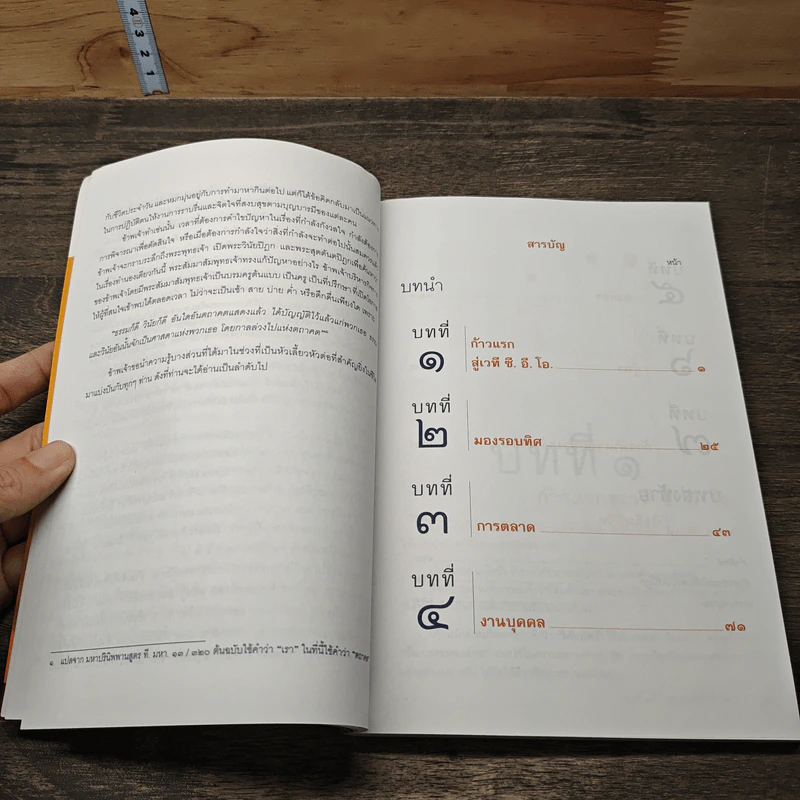 กับชีวิตประจำวัน และหมกมุ่นอยู่กับการทำมาหากินต่อไป แต่ก็ได้ข้อคิดกลับมาเป็นแนวทาง
ในการปฏิบัติตนให้งานการราบรื่นและจิตใจที่สงบสุขตามบุญบารมีของแต่ละคน
ข้าพเจ้าก็ทำเช่นนั้น เวลาที่ต้องการคำไขปัญหาในเรื่องที่กำลังกังวลใจ กำลังต้องการ
การพิจารณาเพื่อตัดสินใจ หรือเมื่อต้องการกำลังใจว่าสิ่งที่กำลังจะทำต่อไปนั้น
ข้าพเจ้าจะกราบระลึกถึงพระพุทธเจ้า เปิดพระวินัยปิฎก และพระสุตตันตปิฎกเพื่อค้นหา
ในเรื่องทำนองเดียวกันนี้ พระสัมมาสัมพุทธเจ้าทรงแก้ปัญหาอย่างไร ข้าพเจ้าบริหารกิจการ
ของข้าพเจ้าโดยมีพระสัมมาสัมพุทธเจ้าเป็นบรมครูต้นแบบ เป็นครู เป็นที่ปรึกษา ที่เปิดโอกาส
ให้ผู้ที่สนใจเข้าพบได้ตลอดเวลา ไม่ว่าจะเป็นเช้า สาย บ่าย ค่ำ หรือดึกดื่นเพียงใด เพราะ
"ธรรมก็ดี วินัยก็ดี อันใดอันตถาคตแสดงแล้ว ได้บัญญัติไว้แล้วแก่พวกเธอ ธรรม
และวินัยอันนั้นจักเป็นศาสดาแห่งพวกเธอ โดยกาลล่วงไปแห่งตถาคต"
ข้าพเจ้าขอนำความรู้บางส่วนที่ได้มาในช่วงที่เป็นหัวเลี้ยวหัวต่อที่สำคัญยิ่งในชีวิต
มาแบ่งปันกับทุกๆ ท่าน ดังที่ท่านจะได้อ่านเป็นลำดับไป
๑ แปลจาก มหาปรินิพพานสูตร ที. มหา. ๑๓ / ๓๒๐ ต้นฉบับใช้คำว่า "เรา" ในที่นี้ใช้คำว่า "ตถาคต
สารบัญ
หน้า
บทนำ
บทที่ ๑ ก้าวแรก
สู่เวที ซี. อี. โอ. ๑
บทที่ ๒ มองรอบทิศ ๒๕
บทที่ ๓ การตลาด ๔๓
บทที่ ๔ งานบุคคล ๗๑
4
3
2
1